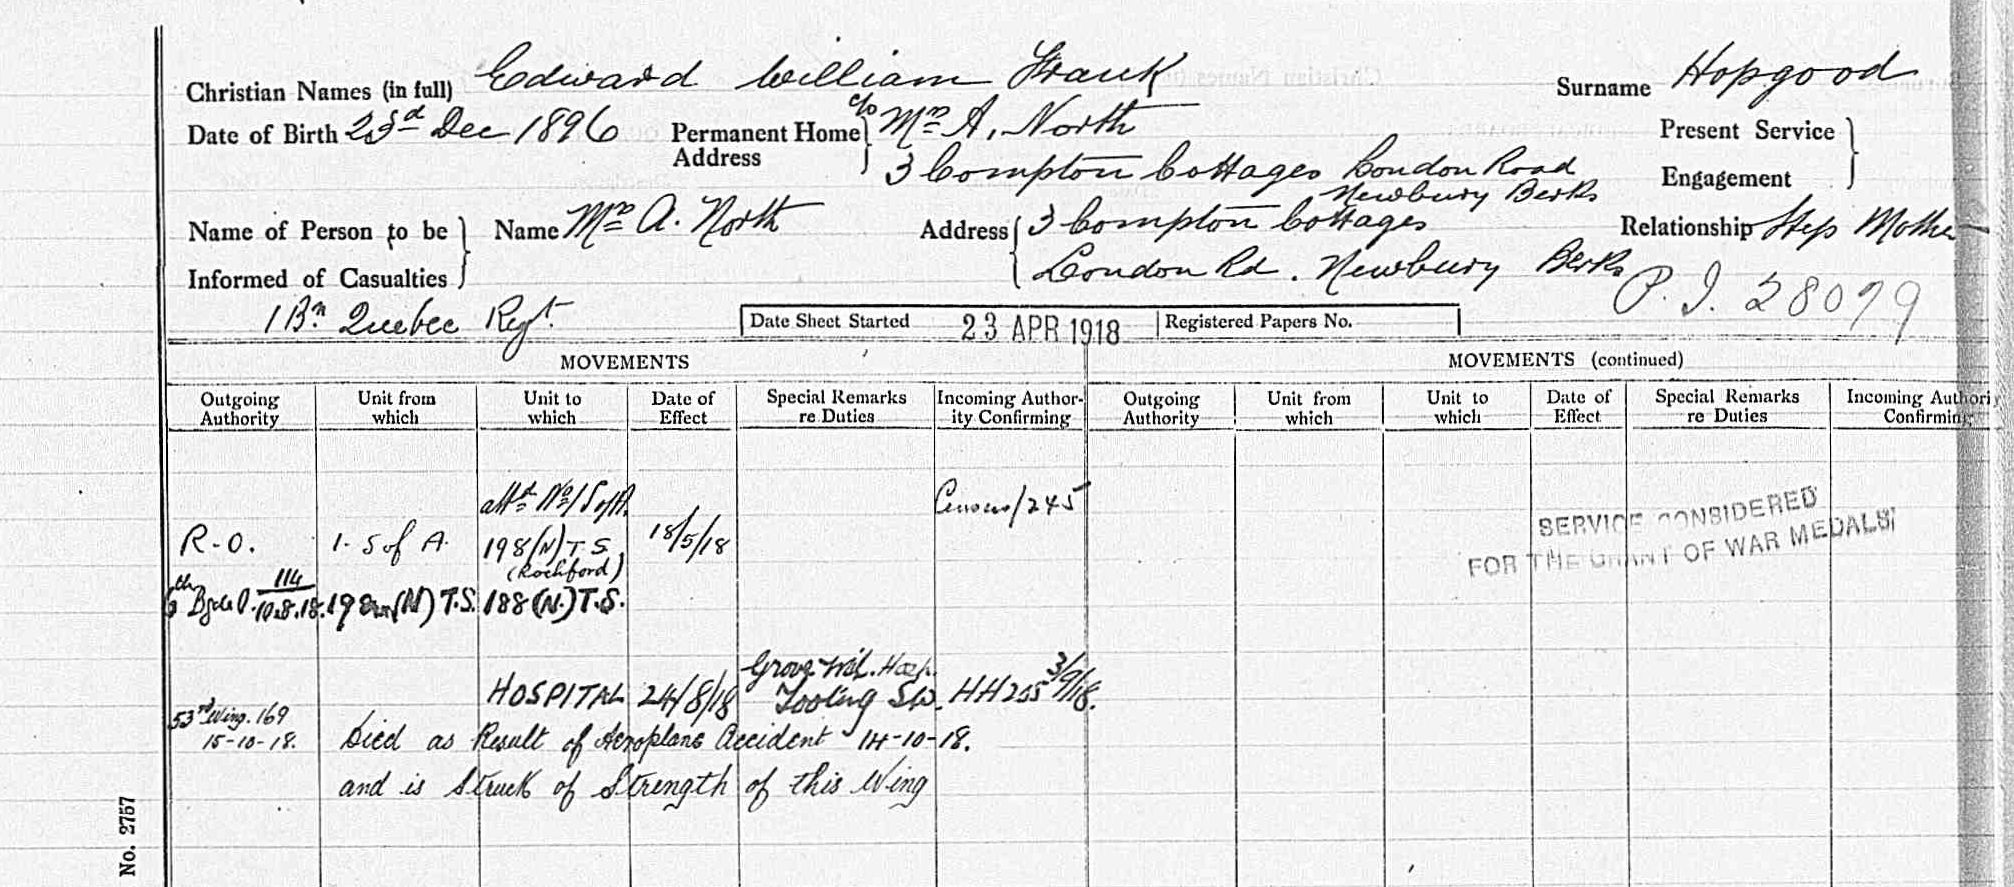 Christian Names (in full) Edward William Frank Surname Hopgood
Date of Birth 23rd Dec 1896 Permanent Home Address } c/o Mrs A. North Present Service
3 Compton Cottages London Road Engagement
Newbury Berks
Name of Person to be Informed of Casualties } Name Mrs A. North Address { 3 Compton Cottages Relationship Step Mother
London Rd. Newbury Berks
P. I. 28079
1 Bn Quebec Regt. Date Sheet Started 23 APR 1918 Registered Papers No.
MOVEMENTS MOVEMENTS (continued)
Outgoing Authority Unit from which Unit to which Date of Effect Special Remarks re Duties Incoming Author-ity Confirming Outgoing Authority Unit from which Unit to which Date of Effect Special Remarks re Duties Incoming Authori Confirming
attd No 1 S of A. Census/245
R.O. 1. S of A. 198 (N) T S 18/5/18
(Rochford)
6th Bgde O. 114/10.8.18. 198 (N) T.S. 188 (N.) T.S.
SERVICE CONSIDERED
FOR THE GRANT OF WAR MEDALS
Grove Mil. Hosp.
HOSPITAL 24/8/18 Tooting SW. HH255 3/9/18.
53rd Wing. 169
15-10-18. Died as Result of Aeroplane Accident 14-10-18.
and is Struck of Strength of this Wing
No. 2757